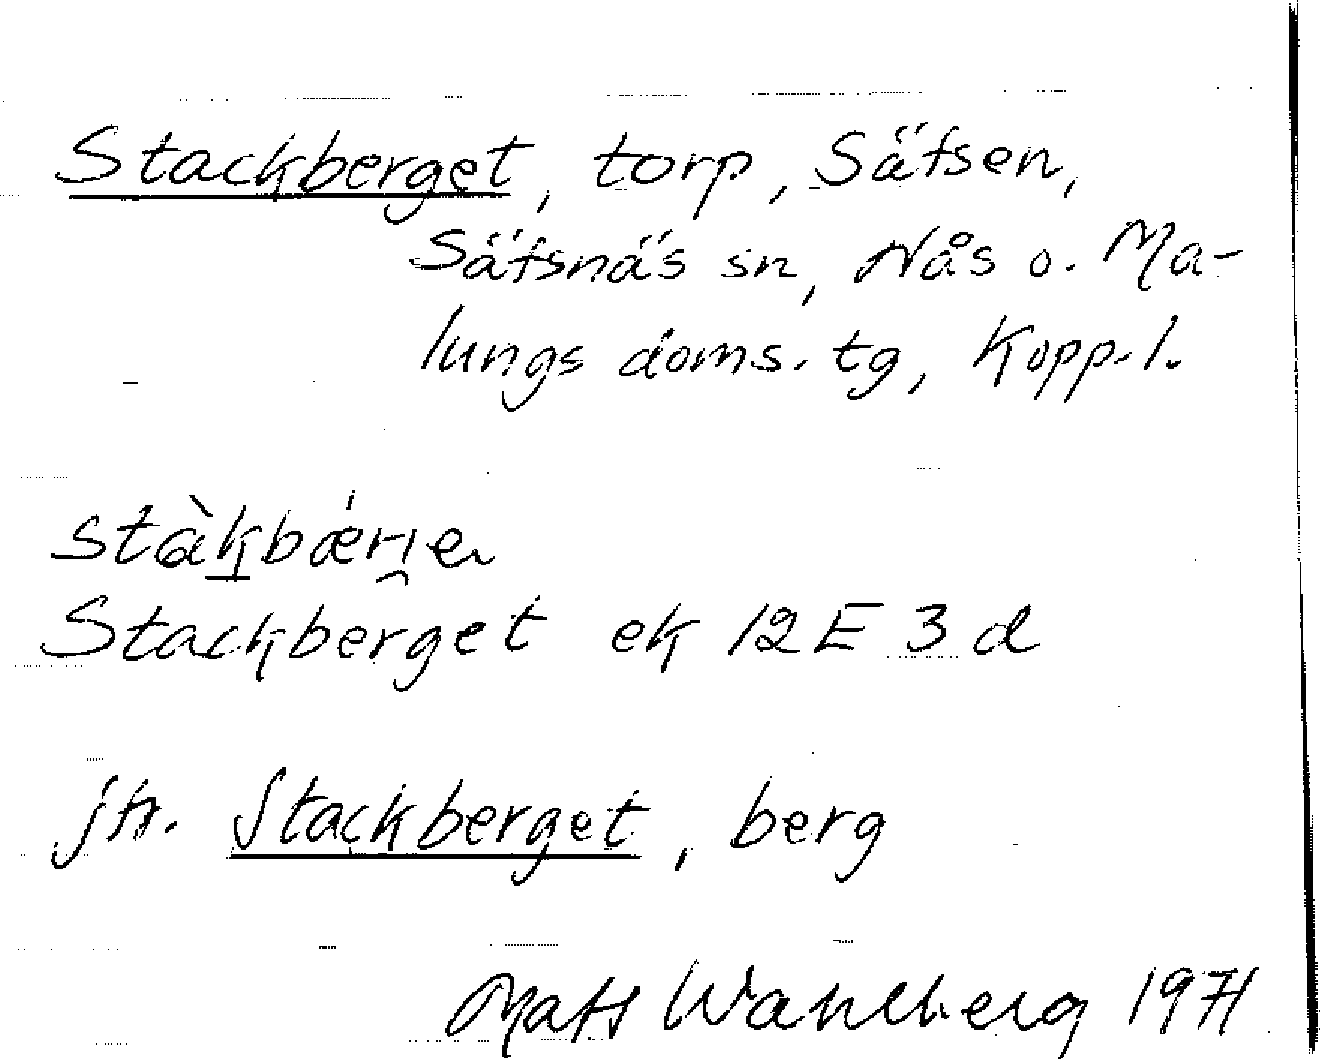 Stackberget, torp, Säfsen,
Säfsnäs sn, Nås o. Ma-
lungs doms. tg, Kopp. l.
stàkbǽrje
Stackberget ek 12E 3d
jfr. Stackberget, berg
Mats Wahlberg 1971